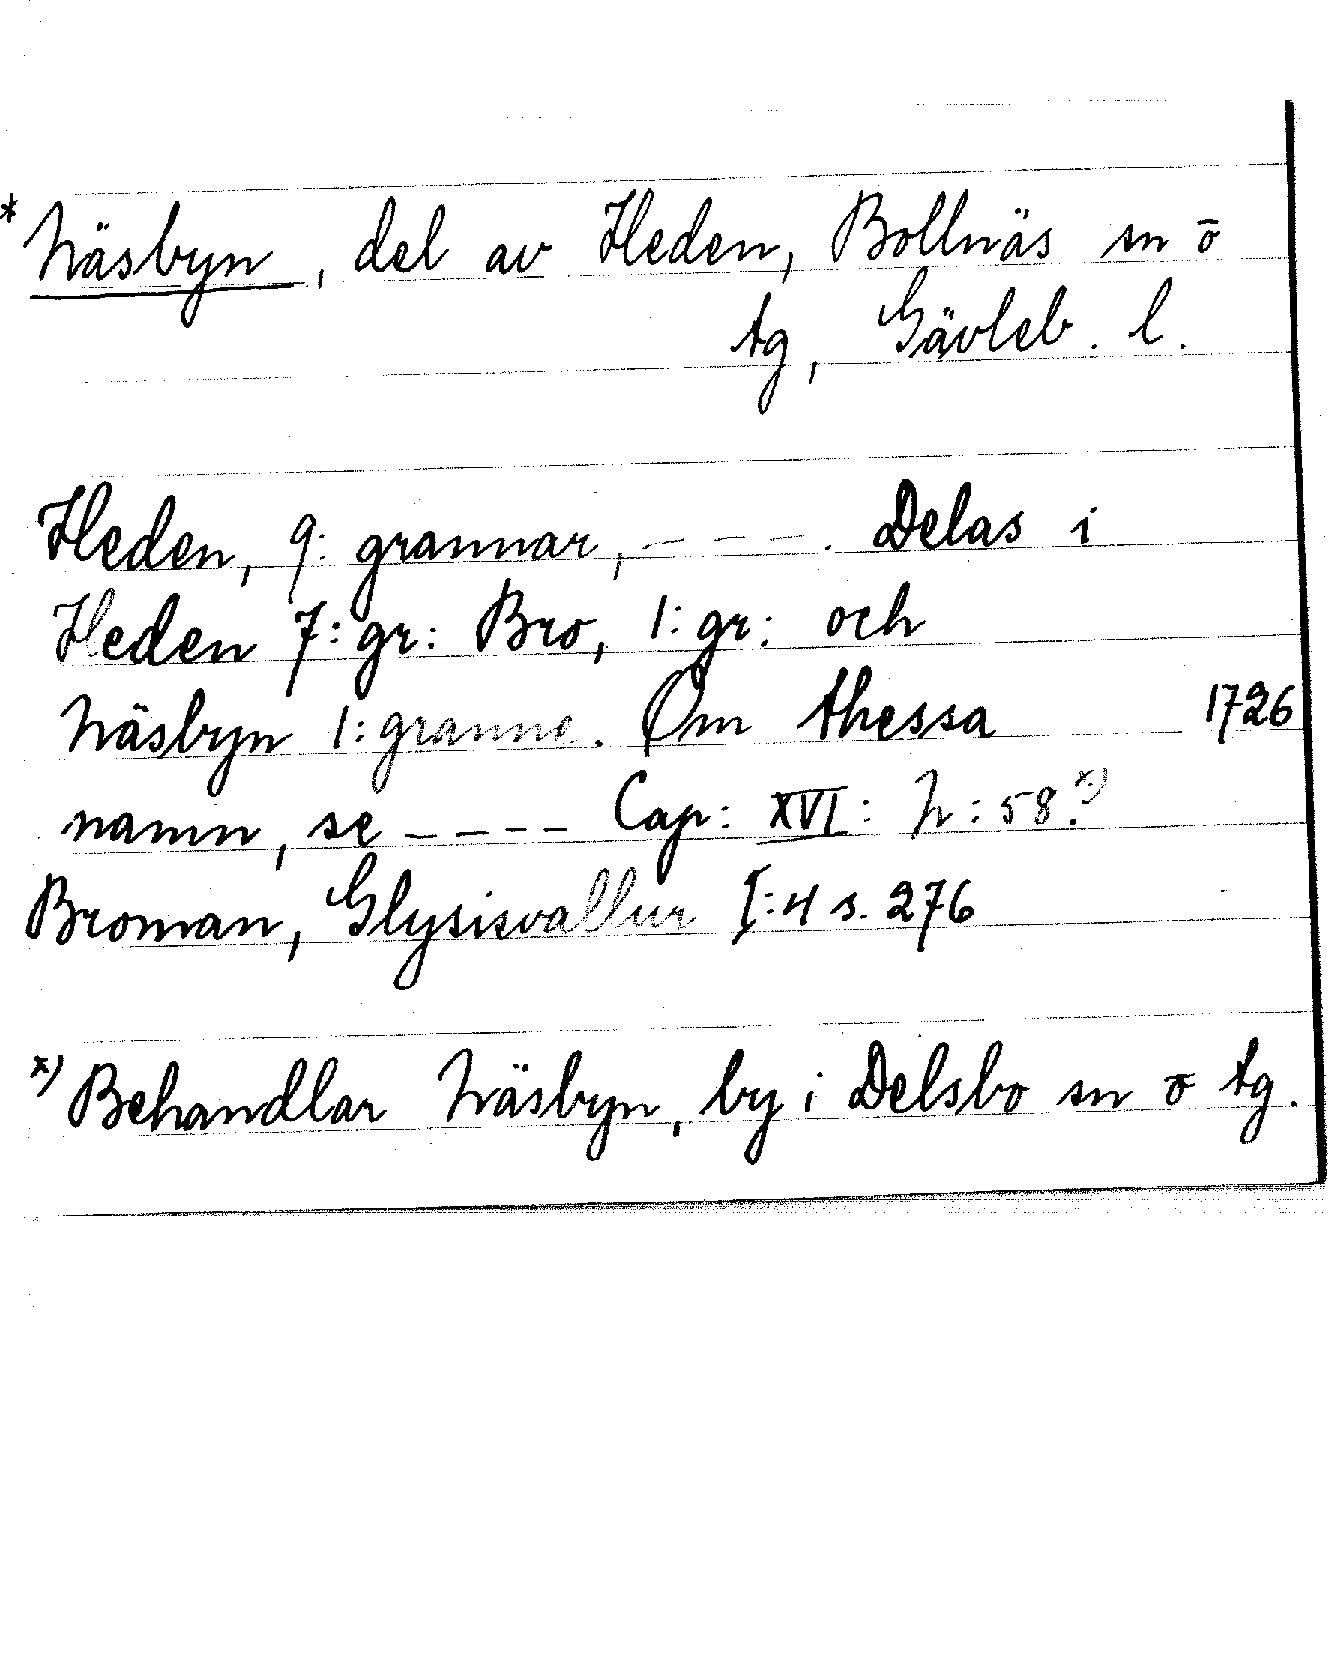 * Näsbyn, del av Heden, Bollnäs sn o
tg, Gävleb. l.
Heden, 9: grannar, – – – –. Delas i
Heden 7: gr: Bro, 1: gr: och
Näsbyn 1: granne. Om thessa 1726
namn, se – – – – Cap: XVI: N: 58.x)
Broman, Glysisvallur I:4 s. 276
x) Behandlar Näsbyn, by i Delsbo sn o tg.